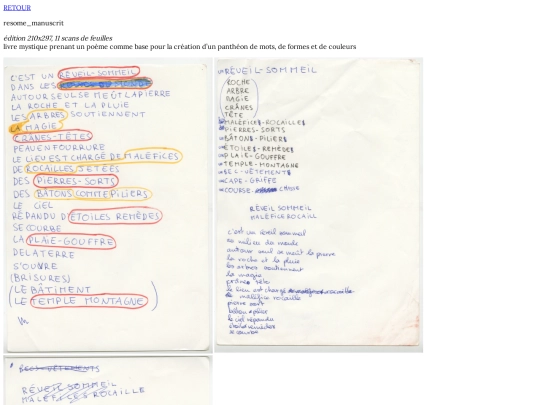 RETOUR
resome_manuscrit
édition 210x297, 11 scans de feuilles
livre mystique prenant un poème comme base pour la création d'un panthéon de mots, de formes et de couleurs
C'EST UN RÉVEIL-SOMMEIL
DANS LES
AUTOUR SEUL SE MEUT LA PIERRE
LA ROCHE ET LA PLUIE
LES ARBRES SOUTIENNENT
LA MAGIE
CRÂNES-TÊTES
PEAU EN FOURRURE
LE LIEU EST CHARGÉ DE MALÉFICES
DE ROCAILLES JETÉES
DES PIERRES-SORTS
DES BÂTONS COMITEPILIERS
LE CIEL
RÉPANDU D'ÉTOILES REMÈDES
SE COURBE
LA PLAIE-GOUFFRE
DE LA TERRE
S'OUVRE
(BRISURES)
(LE BÂTIMENT
(LE TEMPLE MONTAGNE)
RÉVEIL-SOMMEIL
ROCHE
ARBRE
MAGIE
CRÂNES
TÊTE
MALÉFICES-ROCAILLES
PIERRES-SORTS
BÂTONS-PILIERS
ÉTOILES-REMÈDES
PLAIE-GOUFFRE
TEMPLE-MONTAGNE
SEL-VÊTEMENTS
CAPE-GRIFFE
COURSE-
RÉVEIL SOMMEIL
MALÉFICE ROCAILL
c'est un réveil sommeil
au milieu du monde
autour seul se meut la pierre
la roche et la pluie
les arbres soutiennent
la magie
crânes tête
le lieu est chargé
maléfice rocaille
pierre sort
bâton pilier
le ciel répandu
étoile remèdes
se courbe
RÉVEIL SOMMEIL
MALÉFICES ROCAILLE